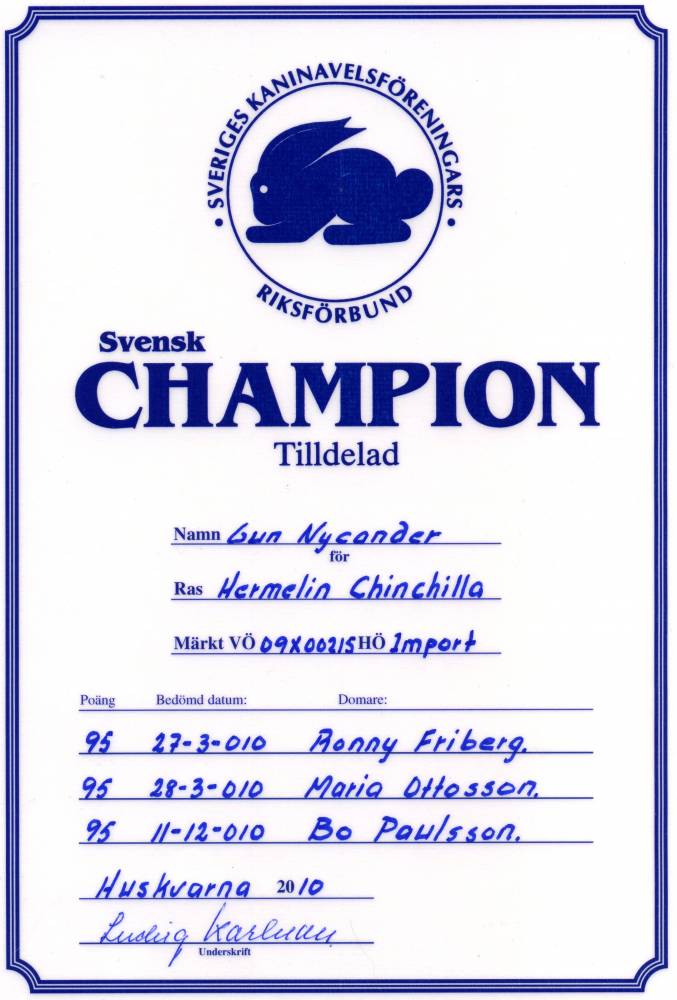 • SVERIGES KANINAVELSFÖRENINGARS •
RIKSFÖRBUND
Svensk
CHAMPION
Tilldelad
Namn Gun Nycander
för
Ras Hermelin Chinchilla
Märkt VÖ 09X00215 HÖ Import
Poäng Bedömd datum: Domare:
95 27-3-010 Ronny Friberg.
95 28-3-010 Maria Ottosson.
95 11-12-010 Bo Paulsson.
Huskvarna 2010
Ludvig Karlman
Underskrift